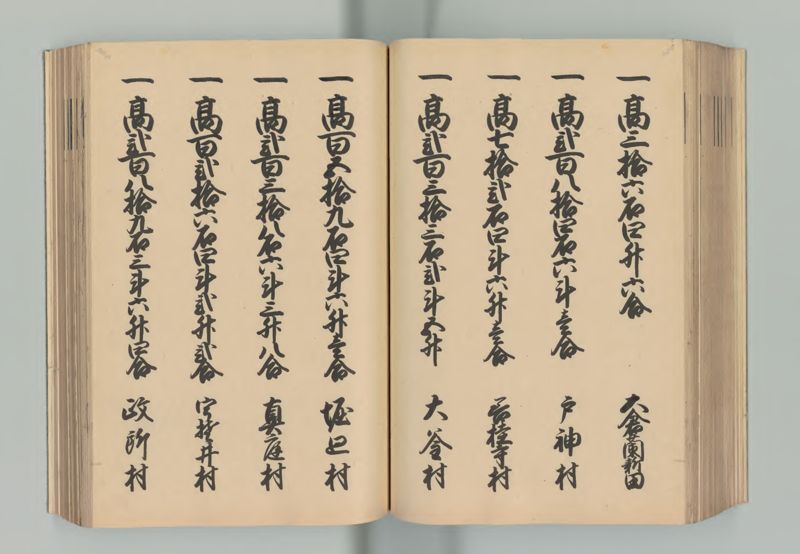 一 高三拾六石四升六合 大倉関新田
一 高弐百八拾四石六斗壱合 戸神村
一 高七拾弐石四斗六升壱合 善桂寺村
一 高弐百三拾三石弐斗五升 大釜村
一 高百五拾九石四斗六升壱合 堀廻村
一 高弐百三拾八石六斗三升八合 真庭村
一 高百弐拾六石四斗弐升弐合 井村
一 高弐百八拾九石三斗六升四合 政所村